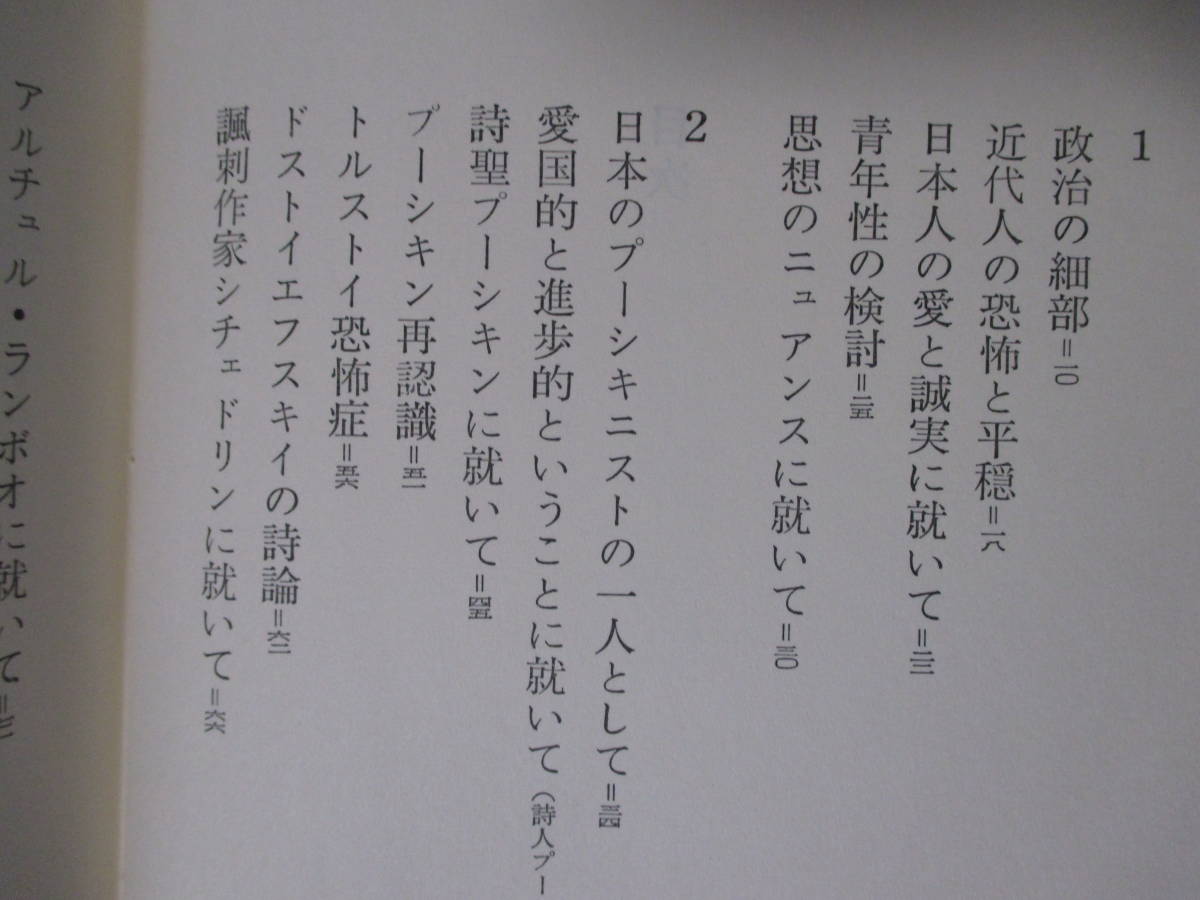 1
政治の細部＝一〇
近代人の恐怖と平穏＝一八
日本人の愛と誠実に就いて＝二二
青年性の検討＝二五
思想のニュアンスに就いて＝三〇
2
日本のプーシキニストの一人として＝三四
愛国的と進歩的ということに就いて（詩人プー
詩聖プーシキンに就いて＝四五
プーシキン再認識＝五一
トルストイ恐怖症＝五六
ドストイエフスキイの詩論＝六二
諷刺作家シチェドリンに就いて＝六六
アルチュル・ランボオに就いて